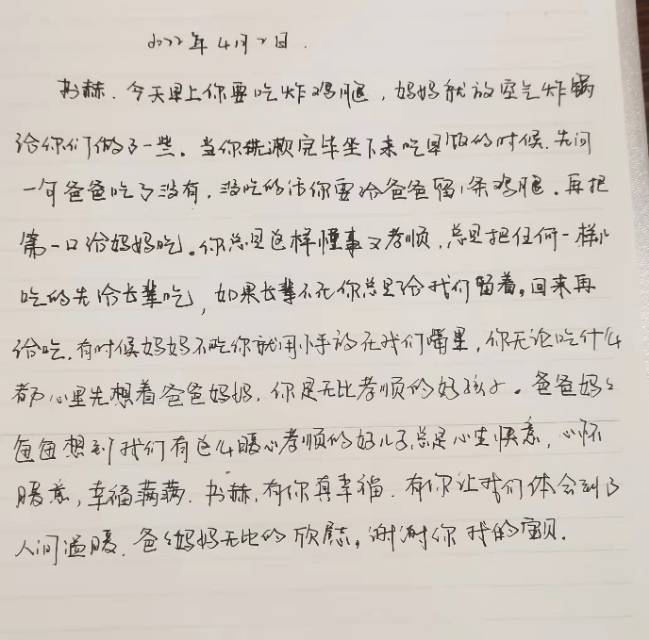 2022年4月2日.
书赫.今天早上你要吃炸鸡腿,妈妈就放空气炸锅
给你们做了一些.当你洗漱完毕坐下来吃早饭的时候.先问
一句爸爸吃了没有.没吃的话你要给爸爸留1条鸡腿.再把
第一口给妈妈吃.你总是这样懂事又孝顺.总是把任何一样
吃的先给长辈吃,如果长辈不在你总是给我们留着.回来再
给吃.有时候妈妈不吃你就用小手放在我们嘴里.你无论吃什么
都心里先想着爸爸妈妈.你是无比孝顺的好孩子.爸爸妈妈
每每想到我们有这么暖心孝顺的好儿子总是心生快意,心怀
暖意,幸福满满.书赫,有你真幸福.有你让我们体会到了
人间温暖.爸爸妈妈无比的欣慰.谢谢你我的宝贝.